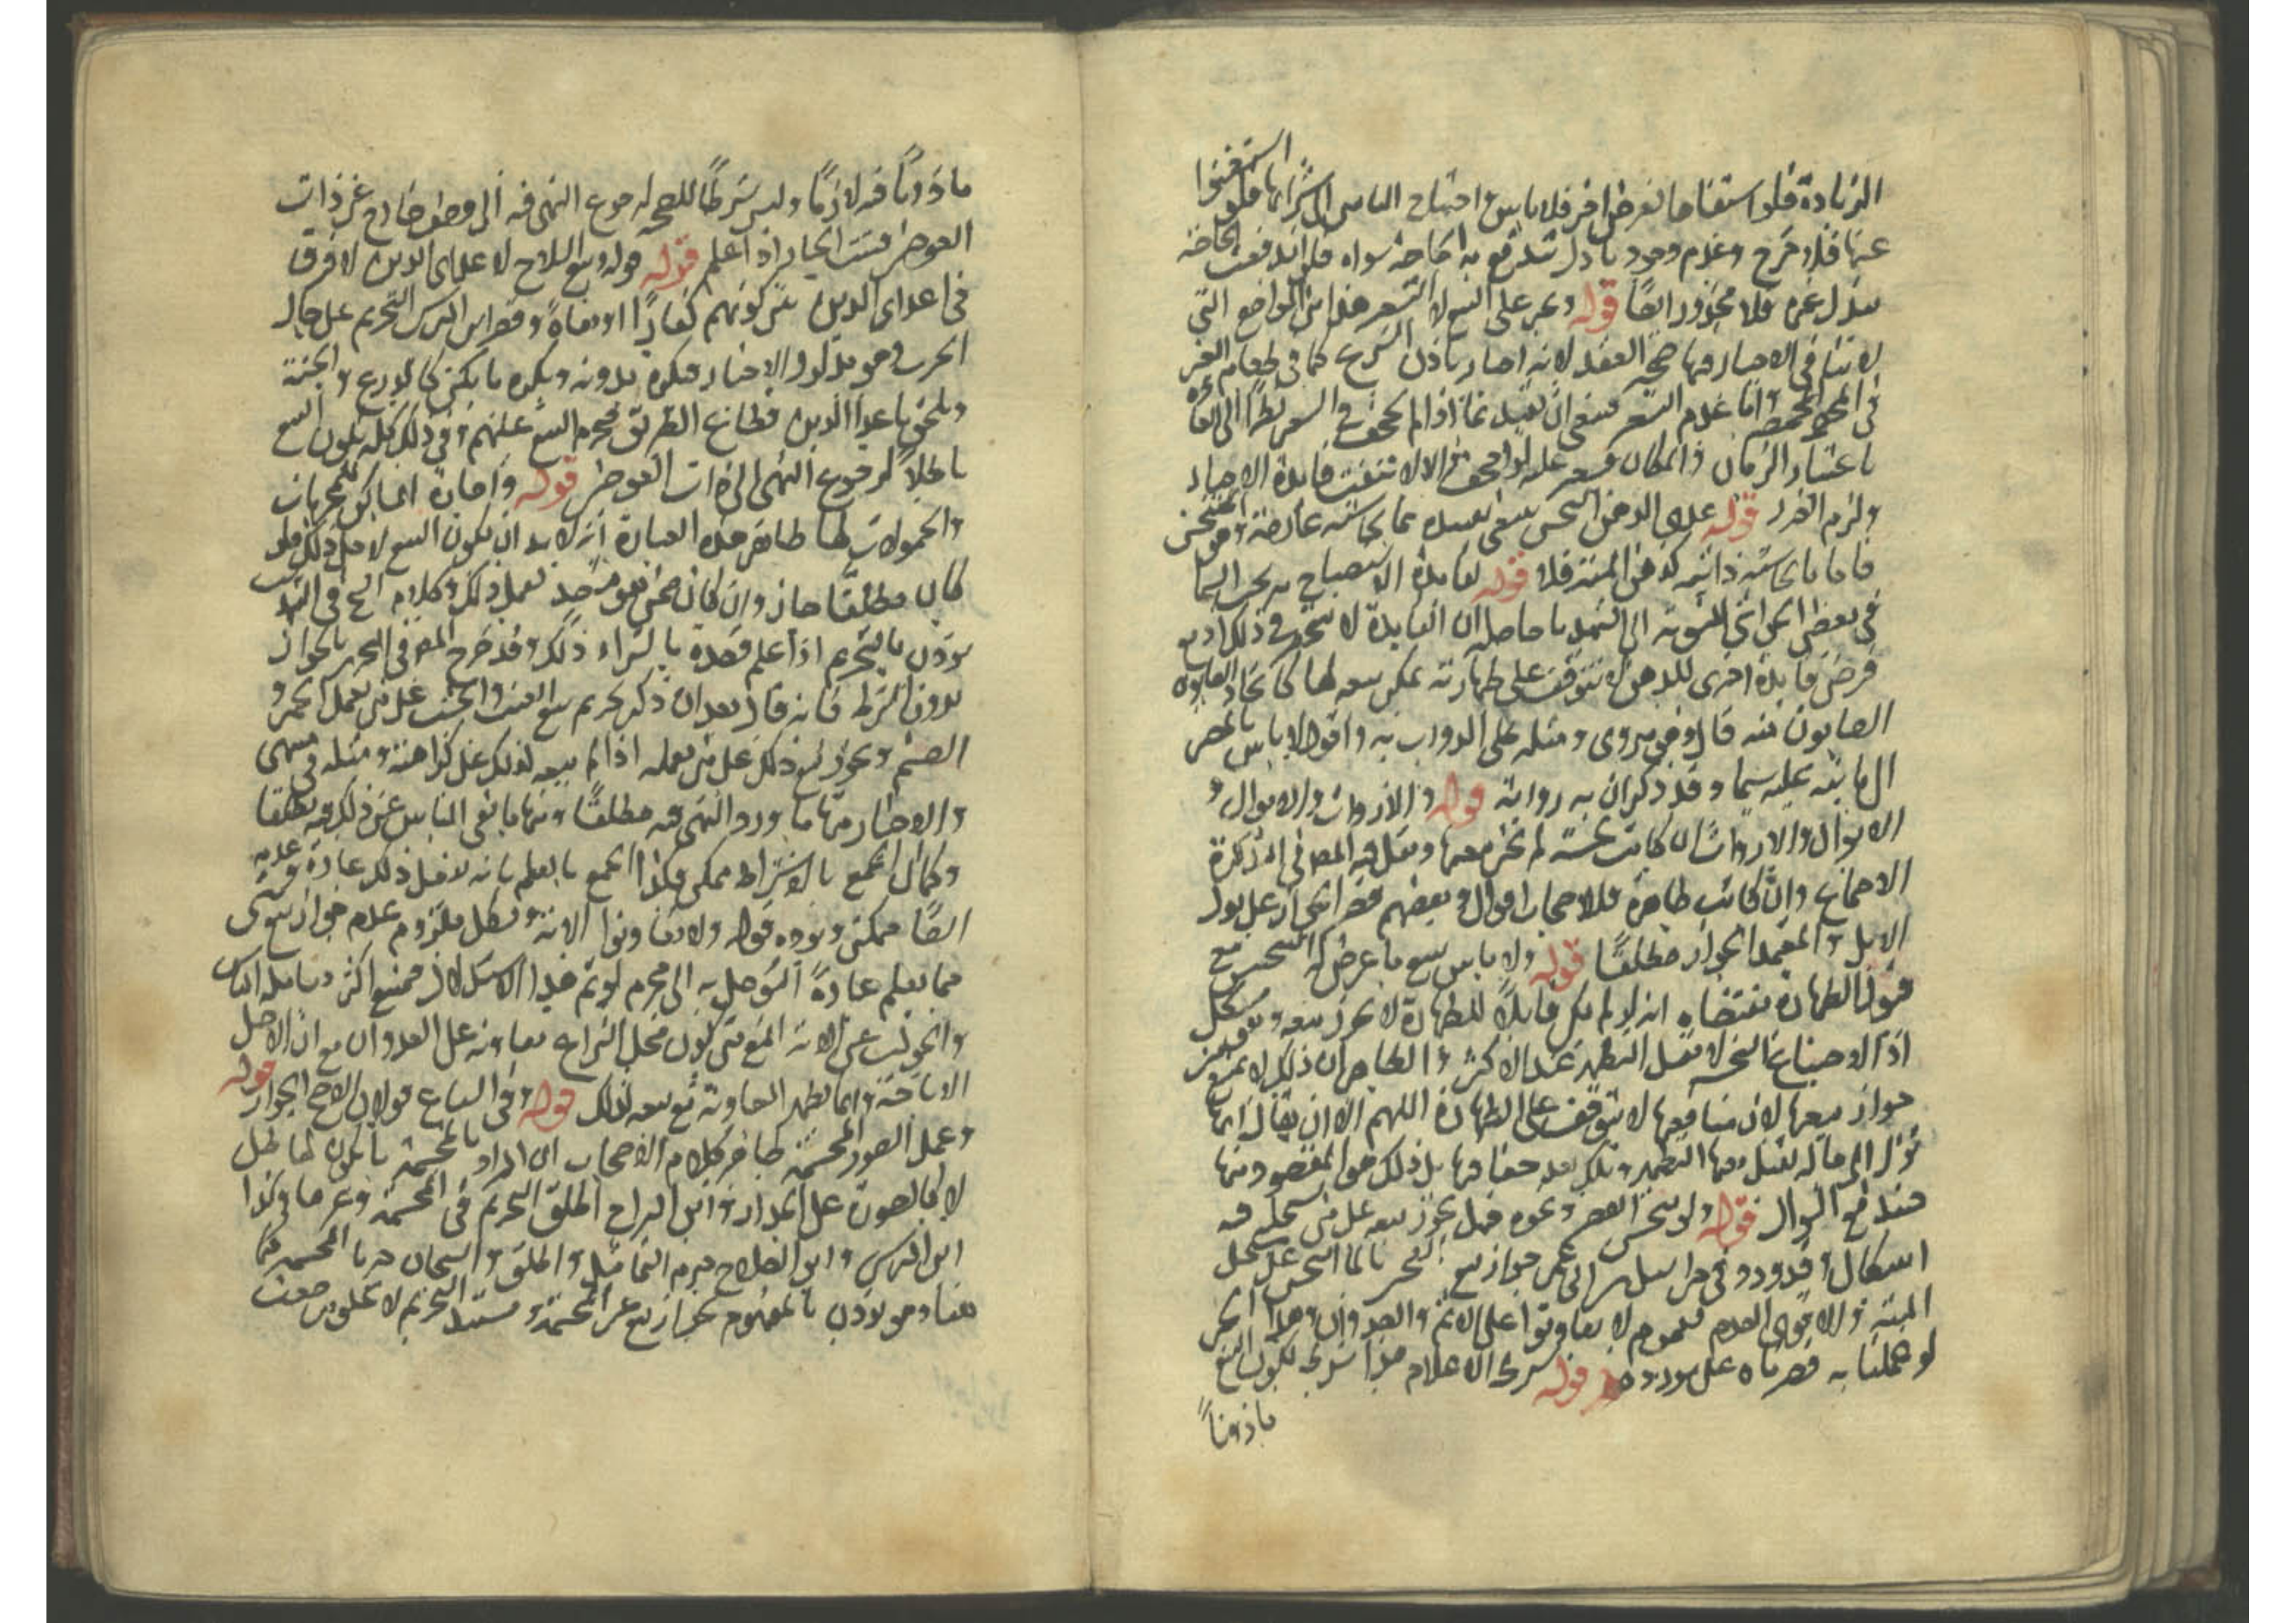 الزيادة فلو استبقاها لغرض اخر فلا باس واحتياج الناس الى شرائها فلو استغنوا
عنها فلا حرج وعدم وجود باذل تندفع به الحاجة سواه فلو اندفعت الحاجة
ببذل غيره فلا محذور ايضا قوله ويجبر على البيع لا التسعير هذا من المواضع التي
لا ينافي الاجبار فيها صحة العقد لانه اجبار باذن الشرع كما في طعام الغير
في المخمصة واما عدم التسعير فينبغي ان يقيد بما اذا لم يجحف في السعر نظرا الى
باعتبار الزمان والمكان فيسعر عليه لو اجحف والا لانتفت فايدة الاجبار
ولزم الضرر قوله عدا الدهن النجس ينبغي تقييده بما نجاسته عارضة
فاما ما نجاسته ذاتية كدهن الميتة فلا قوله لفايدة الاستصباح به تحت السما
في بعض الحواشي المنسوبة الى الشهيد ما حاصله ان الفايدة لا تنحصر في ذلك اذ مع
فرض فايدة اخرى للدهن لا تتوقف على طهارته يمكن بيعه لها كاتخاذ
الصابون منه قال وهو مروي ومثله طلي الدواب به واقول لا باس بالمصير
الى ما نبه عليه سيما وقد ذكر ان به رواية قوله والارواث والابوال
الابوال والارواث ان كانت نجسة لم يجز بيعها ونقل فيه المص في التذكرة
الاجماع وان كانت طاهرة فللاصحاب اقوال وبعضهم قصر الجواز على بول
الابل والمعتمد الجواز مطلقا قوله ولا باس ببيع ما عرض له التنجيس مع
قبول الطهارة مقتضاه انه لو لم يكن قابلا للطهارة لا يجوز بيعه
اذ الاصباغ النجسة لا تقبل التطهير عند الاكثر والظاهر ان ذلك لا يمنع
جواز بيعها لان منافعها لا تتوقف على الطهارة اللهم الا ان يقال انها
تؤل الى حالة تقبل معها التطهير وتلك بعد جفافها بل ذلك هو المقصود منها
فيندفع السؤال قوله ولو تنجس العصير ونحوه فهل يجوز بيعه على من يستحله فيه
اشكال
الميتة والاقوى العدم لعموم لا تعاونوا على الاثم والعدوان
لو عملنا به قصرناه على مورده قوله بشرط الاعلام هذا شرط لكون البيع
ماذونا
ماذونا فيه لازما وليس شرطا للصحة لرجوع النهي فيه الى وصف خارج عن ذات
العوض فيثبت الخيار اذا علم قوله قوله وبيع السلاح لاعداء الدين لا فرق
في اعداء الدين بين كونهم كفارا او بغاة وقصر ابن ادريس التحريم على حال
الحرب وهو مدلول الاخبار فيكره بدونه ويكره ما يكن كالدرع والجنة
ويلحق باعداء الدين قطاع الطريق فيحرم البيع عليهم وفي ذلك كله يكون البيع
باطلا لرجوع النهي الى ذات العوض قوله واجارة المساكن للمحرمات
والحمولات لها ظاهر هذه العبارة انه لا بد ان يكون البيع لاجل ذلك فلو
كان مطلقا جاز وان كان ممن
يؤذن بالتحريم اذا علم قصده بالشراء ذلك وقد صرح المص في التحرير بالجواز
بدون الشرط فانه قال بعد ان ذكر تحريم بيع العنب والخشب على من يعمل الخمر و
الصنم ويجوز بيع ذلك على من يعمله اذا لم يبعه لذلك على كراهية ومثله في المنتهى
والاخبار منها ما ورد النهي فيه مطلقا ومنها ما نفي الباس عن ذلك فيه مطلقا
وكما ان الجمع بالاشتراط ممكن فكذا الجمع بالعلم بانه لا يفعل ذلك عادة
ايضا ممكن ويؤيده قوله ولا تعاونوا الاية ويشكل بلزوم عدم جواز بيع شي
مما يعلم عادة التوصل به الى محرم لو تم هذا الاستدلال فيمنع اكثر معاملة الناس
والجواب عن الاية المنع من كون محل النزاع معاونة على العدوان مع ان الاصل
الاباحة وانما يظهر المعاونة مع بيعه لذلك قوله وفي السباع قولان الاصح الجواز قوله
وعمل الصور المجسمة ظاهر كلام الاصحاب ان المراد بالمجسمة ما يكون لها ظل
لا كالصورة على الجدار وابن البراج اطلق التحريم في المجسمة وغيرها وكذا
ابن ادريس وابو الصلاح حرم التماثيل واطلق والشيخان حرما المجسمة كما
هنا وهو يؤذن بالمفهوم بجواز بيع غير المجسمة ومستند التحريم لا يخلو من ضعف